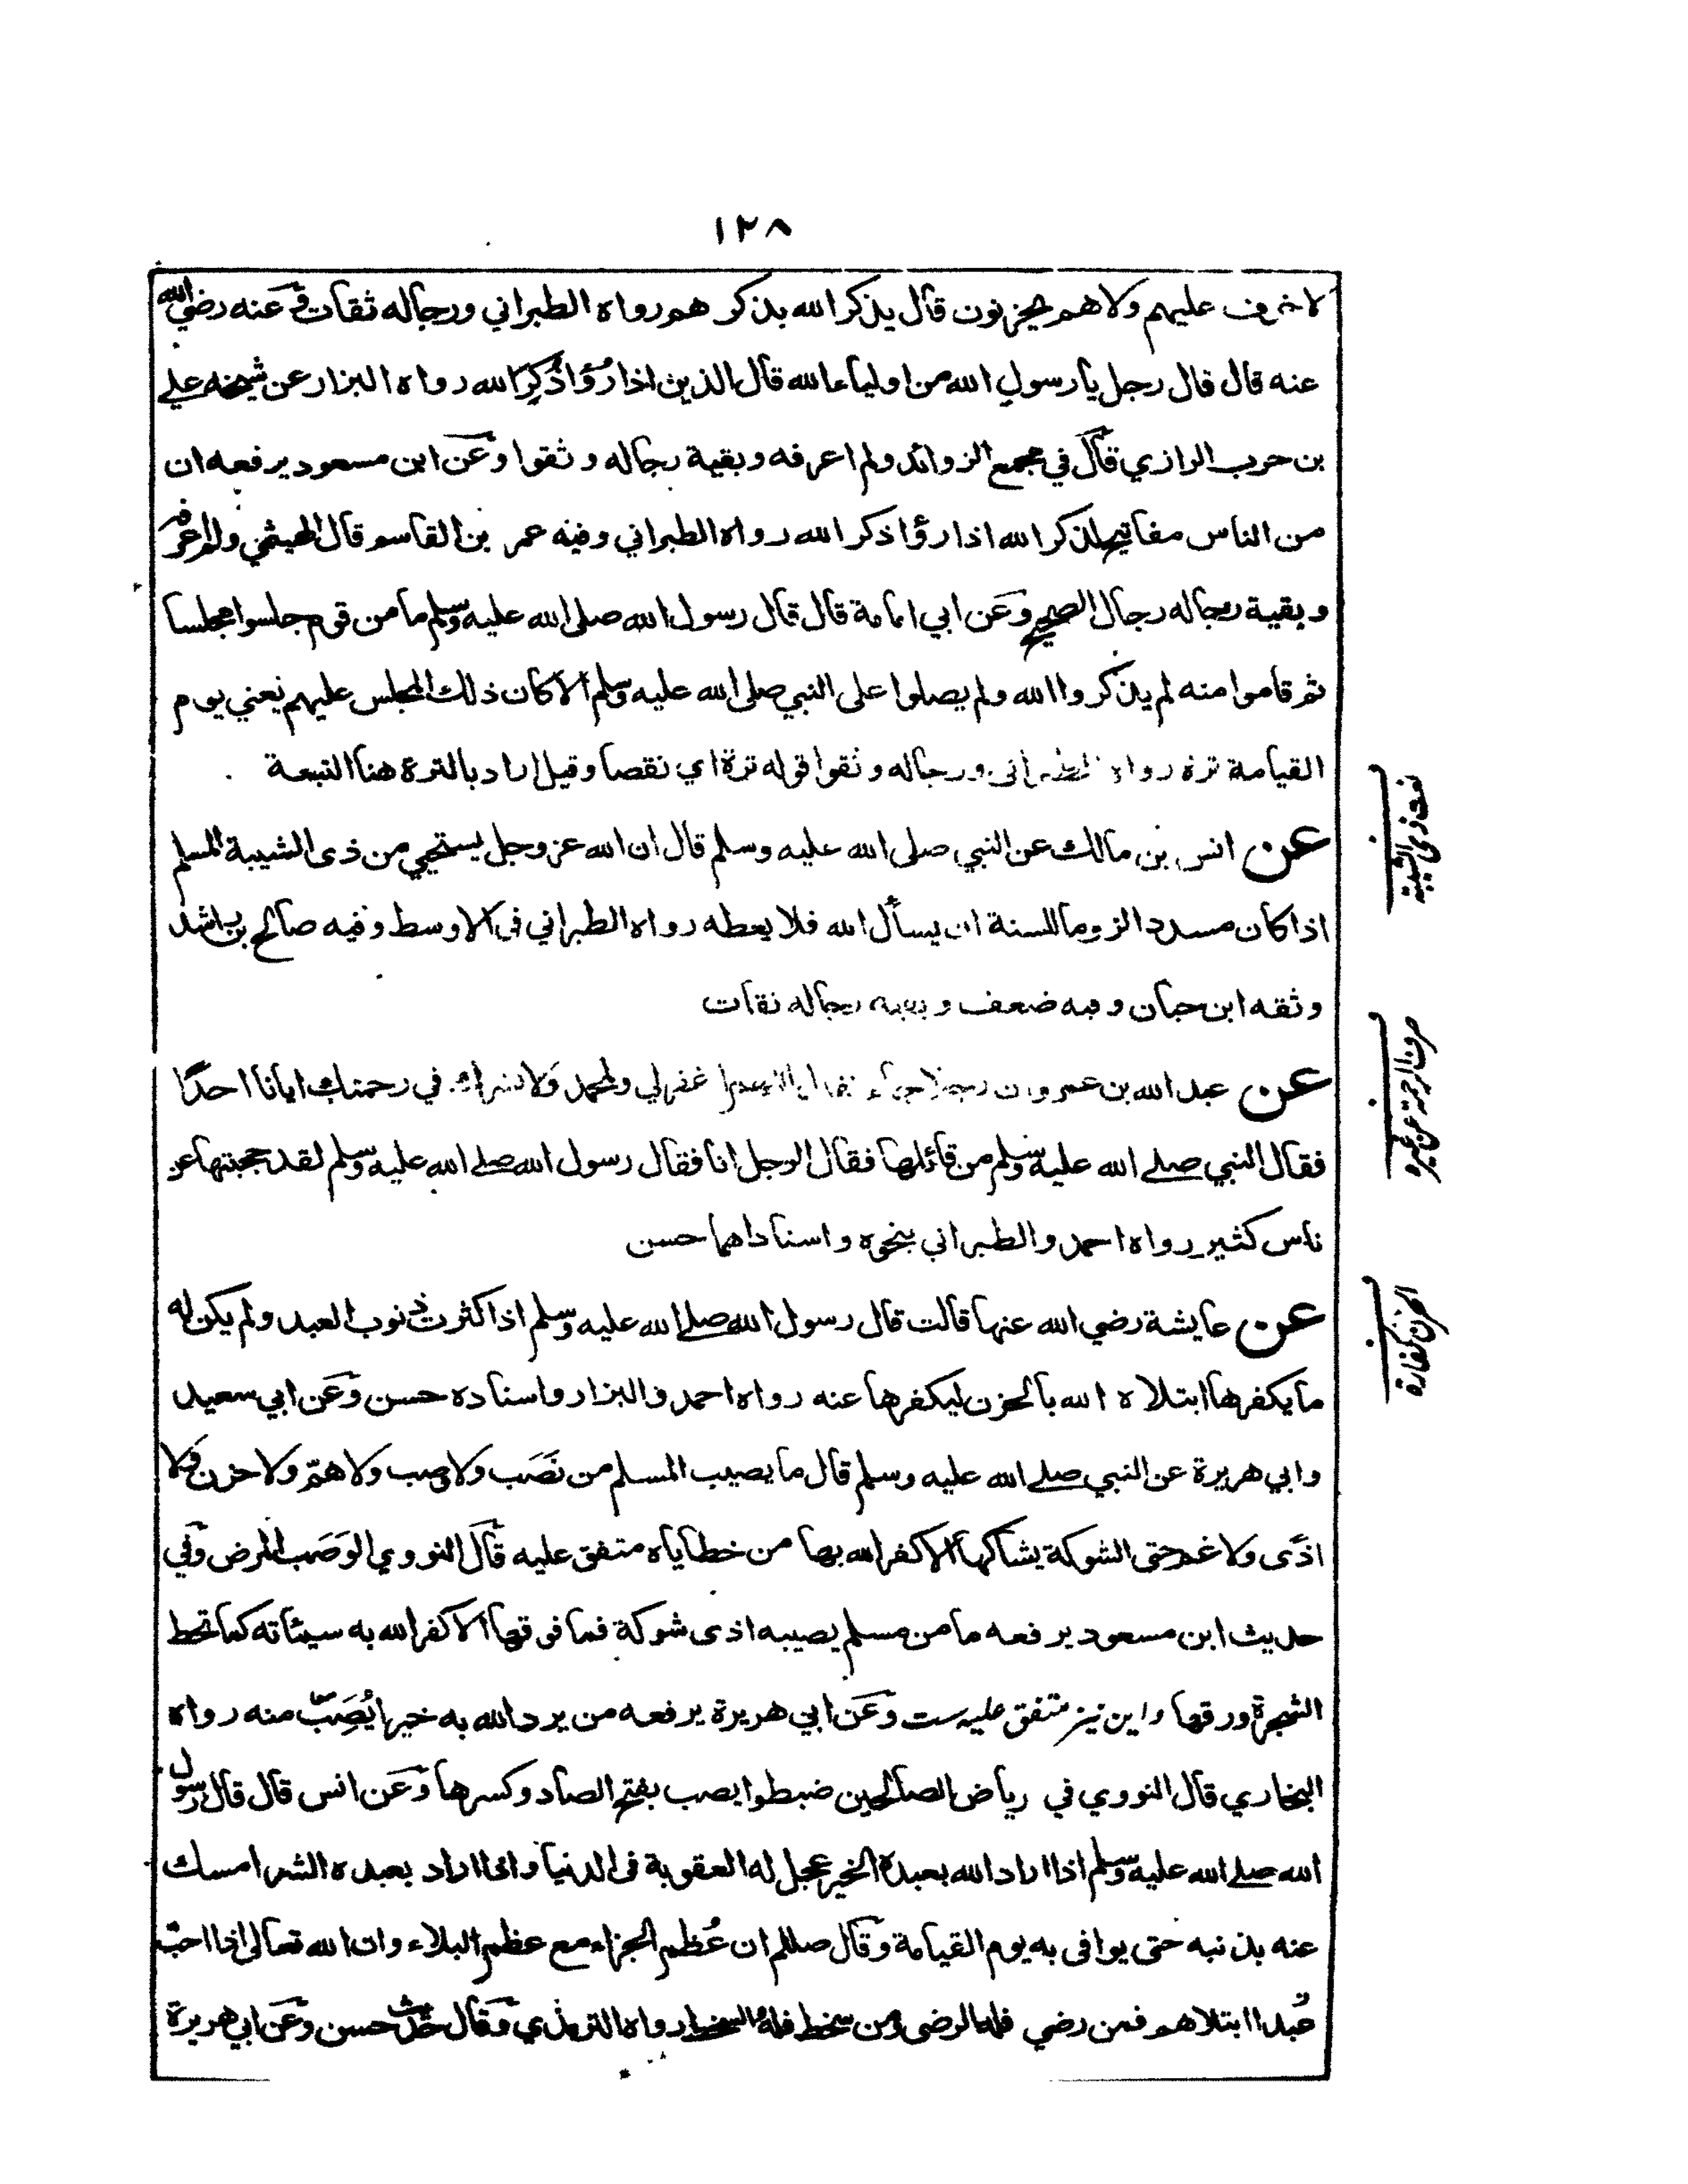 ١٢٨
لا خوف عليهم ولا هم يحزنون قال يذكر الله بذكرهم رواه الطبراني ورجاله ثقات وعنه رضي الله
عنه قال قال رجل يا رسول الله من اولياء الله قال الذين اذا رُؤا ذُكِرَ الله رواه البزار عن شيخه علي
بن حرب الرازي قال في مجمع الزوائد ولم اعرفه وبقية رجاله وثقوا وعن ابن مسعود يرفعه ان
من الناس مفاتيح لذكر الله اذا رؤا ذكر الله رواه الطبراني وفيه عمر بن القاسم قال الهيثمي ولم اعرفه
وبقية رجاله رجال الصحيح وعن ابي امامة قال قال رسول الله صلى الله عليه وسلم ما من قوم جلسوا مجلسا
ثم قاموا منه لم يذكروا الله ولم يصلوا على النبي صلى الله عليه وسلم الا كان ذلك المجلس عليهم يعني يوم
القيامة ترة رواه الطبراني ورجاله وثقوا قوله ترة اي نقصا وقيل اراد بالترة هنا التبعة
عن انس بن مالك عن النبي صلى الله عليه وسلم قال ان الله عز وجل يستحيي من ذى الشيبة المسلم
اذا كان مسددا لزوما للسنة ان يسأل الله فلا يعطه رواه الطبراني فى الاوسط وفيه صالح بن راشد
وثقه ابن حبان وفيه ضعف وبقية رجاله ثقات
عن عبد الله بن عمرو ان رجلا جاء فقال اللهم اغفر لي ولمحمد ولا تشرك في رحمتك ايانا احدًا
فقال النبي صلے الله عليه وسلم من قائلها فقال الرجل انا فقال رسول الله صلے الله عليه وسلم لقد حجبتها عن
ناس كثير رواه احمد والطبراني بنحوه واسنادهما حسن
عن عايشة رضي الله عنها قالت قال رسول الله صلے الله عليه وسلم اذا كثرت ذنوب العبد ولم يكن له
ما يكفرها ابتلاه الله بالحزن ليكفرها عنه رواه احمد والبزار واسناده حسن وعن ابي سعيد
وابي هريرة عن النبي صلے الله عليه وسلم قال ما يصيب المسلم من نَصَب ولا وصب ولا همّ ولا حزن ولا
اذًى ولا غم حتى الشوكة يشاكها الا كفر الله بها من خطاياه متفق عليه قال النووي الوَصَب المرض وفي
حديث ابن مسعود يرفعه ما من مسلم يصيبه اذى شوكة فما فوقها الا كفر الله به سيئاته كما تحط
الشجرة ورقها واين نيز متفق عليه ست وعن ابي هريرة يرفعه من يرد الله به خيرا يُصَِبْ منه رواه
البخاري قال النووي في رياض الصالحين ضبطوا يصب بفتح الصاد وكسرها وعن انس قال قال رسول
الله صلے الله عليه وسلم اذا اراد الله بعبده الخير عجل له العقوبة فى الدنيا واذا اراد بعبده الشر امسك
عنه بذنبه حتى يوافى به يوم القيامة وقال صللم ان عُظم الجزاء مع عظم البلاء وان الله تعالى اذا احبّ
عبدا ابتلاهم فمن رضي فله الرضى ومن سخط فله السخط رواه الترمذي وقال حديث حسن وعن ابي هريرة
نعت ذى الشيبة
صرف الرحمة عن غيره
الحزن كفارة